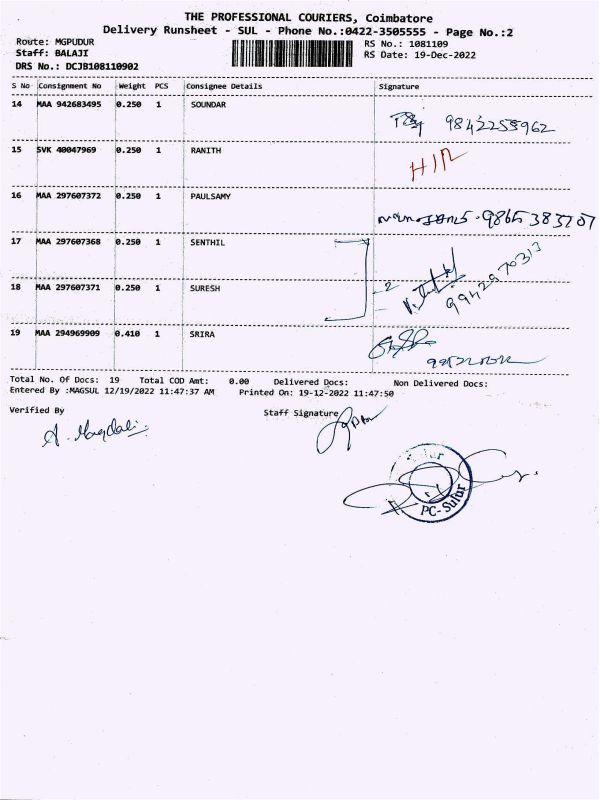 THE PROFESSIONAL COURIERS, Coimbatore
Delivery Runsheet - SUL - Phone No.:0422-3505555 - Page No.:2
Route: MGPUDUR
Staff: BALAJI
DRS No.: DCJB108110902
RS No.: 1081109
RS Date: 19-Dec-2022
S No Consignment No Weight PCS Consignee Details Signature
14 MAA 942683495 0.250 1 SOUNDAR
9842255962
15 SVK 40047969 0.250 1 RANITH
16 MAA 297607372 0.250 1 PAULSAMY
9865383707
17 MAA 297607368 0.250 1 SENTHIL
9942970313
18 MAA 297607371 0.250 1 SURESH
19 MAA 294969909 0.410 1 SRIRA
Total No. Of Docs: 19 Total COD Amt: 0.00 Delivered Docs: Non Delivered Docs:
Entered By :MAGSUL 12/19/2022 11:47:37 AM Printed On: 19-12-2022 11:47:50
Verified By Staff Signature
A. Magdali
Sulur
PC-Sulur